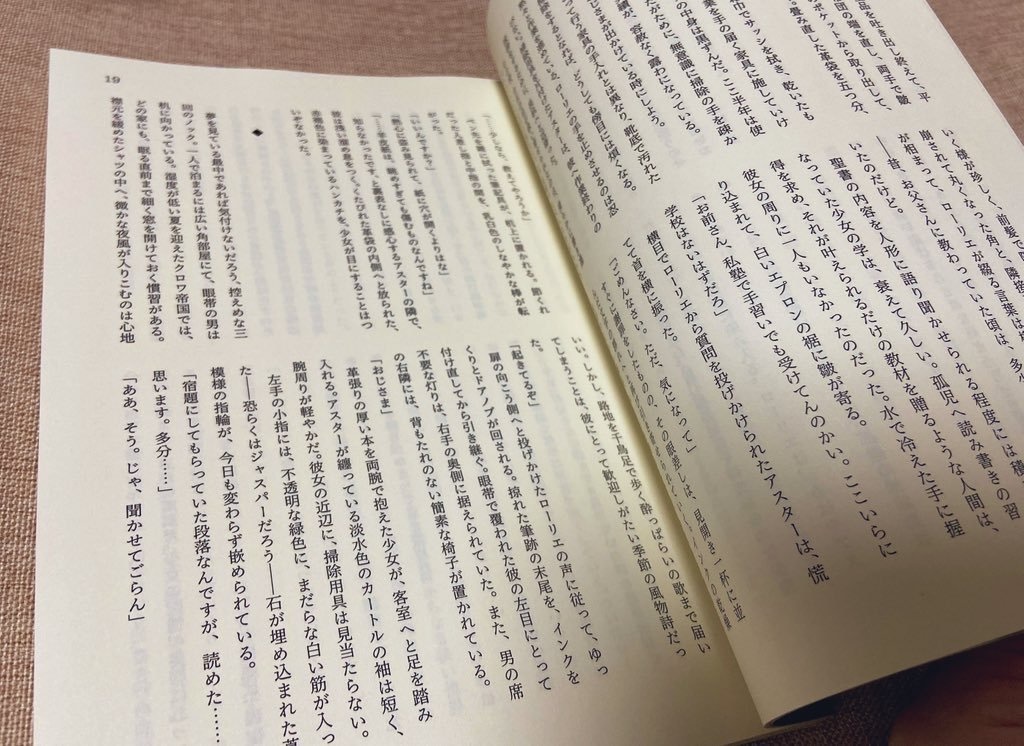 品を吐き出し終えて、平
団の端を直し、両手で皺
ポケットから取り出して、
畳み直した革袋を五つ分、
巾でサッシを拭き、乾いたも
葉を手の届く家具に施していけ
の中身は黒ずんだ。ここ半年は使
たがために、無意識に掃除の手を疎か
績が、容赦なく露わになっている。
じさまが出かけている時にしよう。
って行う家具の手入れとは異なり、靴底で汚れた
となれば、どうしても傍目には煩くなる。
いく様が珍しく、前髪で
崩されて丸くなった角と、隣接
が相まって、ローリエが綴る言葉は
――昔、お父さんに教わっていた頃は、多少
いたのだけれど。
聖書の内容を人形に語り聞かせられる程度には積
なっていた少女の学は、衰えて久しい。孤児へ読み書きの習
得を求め、それが叶えられるだけの教材を贈るような人間は、
彼女の周りに一人もいなかったのだった。水で冷えた手に握
り込まれて、白いエプロンの裾に皺が寄る。
「お前さん、私塾で手習いでも受けてんのかい。ここいらに
学校はないはずだろ」
横目でローリエから質問を投げかけられたアスターは、慌
てて首を横に振った。
「ごめんなさい。ただ、気になって」
19
がった。
「いいんですか?」
「熱心に盗み見られて、紙に穴が開くよりはな」
「――羊皮紙は、眺めすぎても傷むものなんですね」
知らなかったです、と裏表なしに感心するアスターの隣で、
彼は浅い溜め息をつく。くたびれた革袋の内側へと放られた、
赤褐色に染まっているハンカチを、少女が目にすることはつ
いぞなかった。
◆
夢を見ている最中であれば気付けないだろう、控えめな三
回のノック。一人で泊まるには広い角部屋にて、眼帯の男は
机に向かっている。湿度が低い夏を迎えたクロワ帝国では、
どの家にも、眠る直前まで細く窓を開けておく慣習がある。
襟元を緩めたシャツの中へ、微かな夜風が入りこむのは心地
いい。しかし、路地を千鳥足で歩く酔っぱらいの歌まで届い
てしまうことは、彼にとって歓迎しがたい季節の風物詩だっ
た。
「起きてるぞ」
扉の向こう側へと投げかけたローリエの声に従って、ゆっ
くりとドアノブが回される。掠れた筆跡の末尾を、インクを
付け直してから引き継ぐ。眼帯で覆われた彼の左目にとって
不要な灯りは、右手の奥側に据えられていた。また、男の席
の右隣には、背もたれのない簡素な椅子が置かれている。
「おじさま」
革張りの厚い本を両腕で抱えた少女が、客室へと足を踏み
入れる。アスターが纏っている淡水色のカートルの袖は短く、
腕周りが軽やかだ。彼女の近辺に、掃除用具は見当たらない。
左手の小指には、不透明な緑色に、まだらな白い筋が入っ
た――恐らくはジャスパーだろう――石が埋め込まれた
模様の指輪が、今日も変わらず嵌められている。
「宿題にしてもらっていた段落なんですが、読めた……
思います。多分……」
「ああ、そう。じゃ、聞かせてごらん」